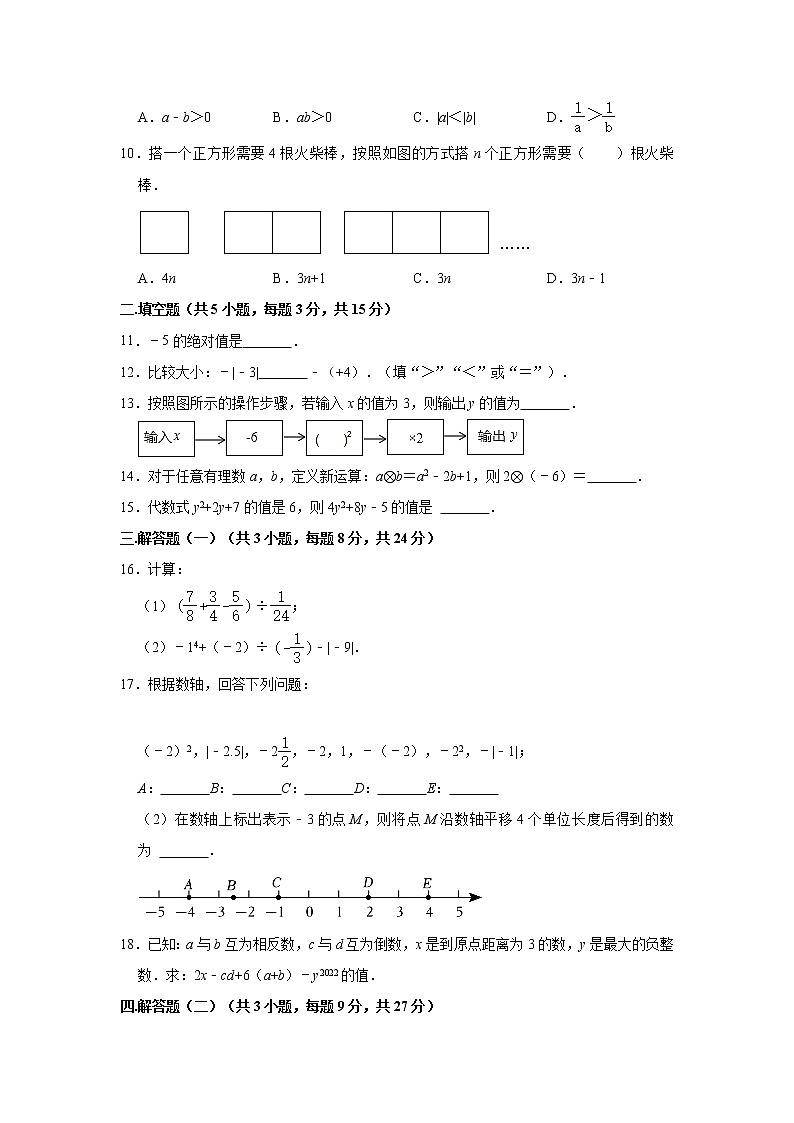 A．a﹣b＞0 B．ab＞0 C．|a|＜|b| D．1/a＞1/b
10．搭一个正方形需要4根火柴棒，按照如图的方式搭n个正方形需要（　　）根火柴
棒．
……
A．4n B．3n+1 C．3n D．3n﹣1
二.填空题（共5小题，每题3分，共15分）
11．﹣5的绝对值是_______．
12．比较大小：﹣|﹣3|_______﹣（+4）．（填“＞”“＜”或“＝”）．
13．按照图所示的操作步骤，若输入x的值为3，则输出y的值为_______．
输入x -6 (　)² ×2 输出y
14．对于任意有理数a，b，定义新运算：a⊗b＝a²﹣2b+1，则2⊗（﹣6）＝_______．
15．代数式y²+2y+7的值是6，则4y²+8y﹣5的值是 _______．
三.解答题（一）（共3小题，每题8分，共24分）
16．计算：
（1）（7/8+3/4−5/6）÷1/24；
（2）﹣1⁴+（﹣2）÷（−1/3）﹣|﹣9|．
17．根据数轴，回答下列问题：
（﹣2）²，|﹣2.5|，﹣2 1/2，﹣2，1，﹣（﹣2），﹣2²，﹣|﹣1|；
A：_______B：_______C：_______D：_______E：_______
（2）在数轴上标出表示﹣3的点M，则将点M沿数轴平移4个单位长度后得到的数
为 _______．
A B C D E
−5 −4 −3 −2 −1 0 1 2 3 4 5
18．已知：a与b互为相反数，c与d互为倒数，x是到原点距离为3的数，y是最大的负整
数．求：2x﹣cd+6（a+b）﹣y²⁰²²的值．
四.解答题（二）（共3小题，每题9分，共27分）